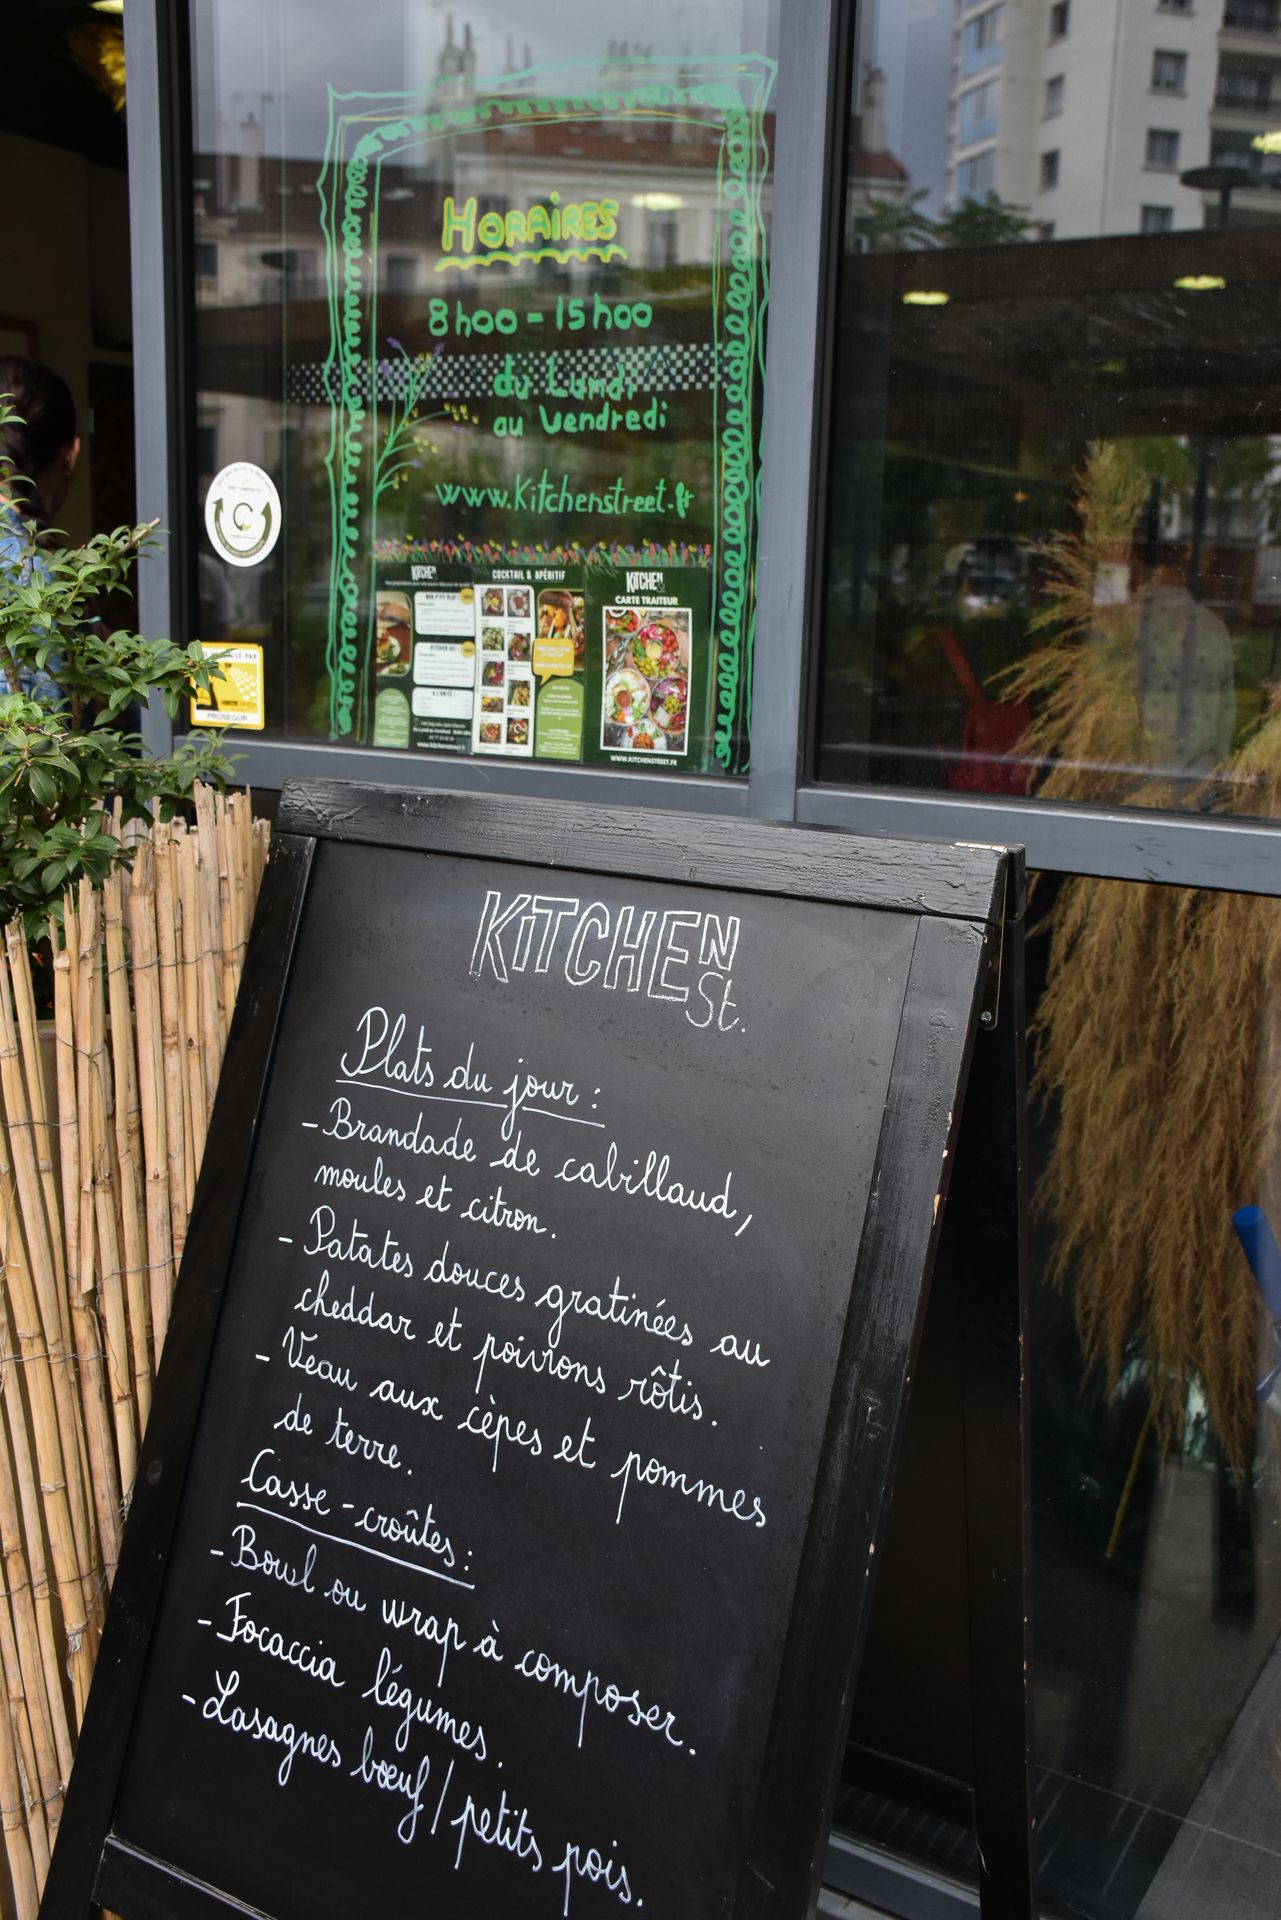 HORAIRES
8h00 - 15h00
du Lundi
au Vendredi
www.Kitchenstreet.fr
KITCHEN
COCKTAIL & APÉRITIF
KITCHEN
CARTE TRAITEUR
WWW.KITCHENSTREET.FR
PROSEGUR
KITCHEN
St.
Plats du jour :
- Brandade de cabillaud,
moules et citron.
- Patates douces gratinées au
cheddar et poivrons rôtis.
- Veau aux cèpes et pommes
de terre.
Casse-croûtes :
- Bowl ou wrap à composer.
- Focaccia légumes.
- Lasagnes bœuf / petits pois.